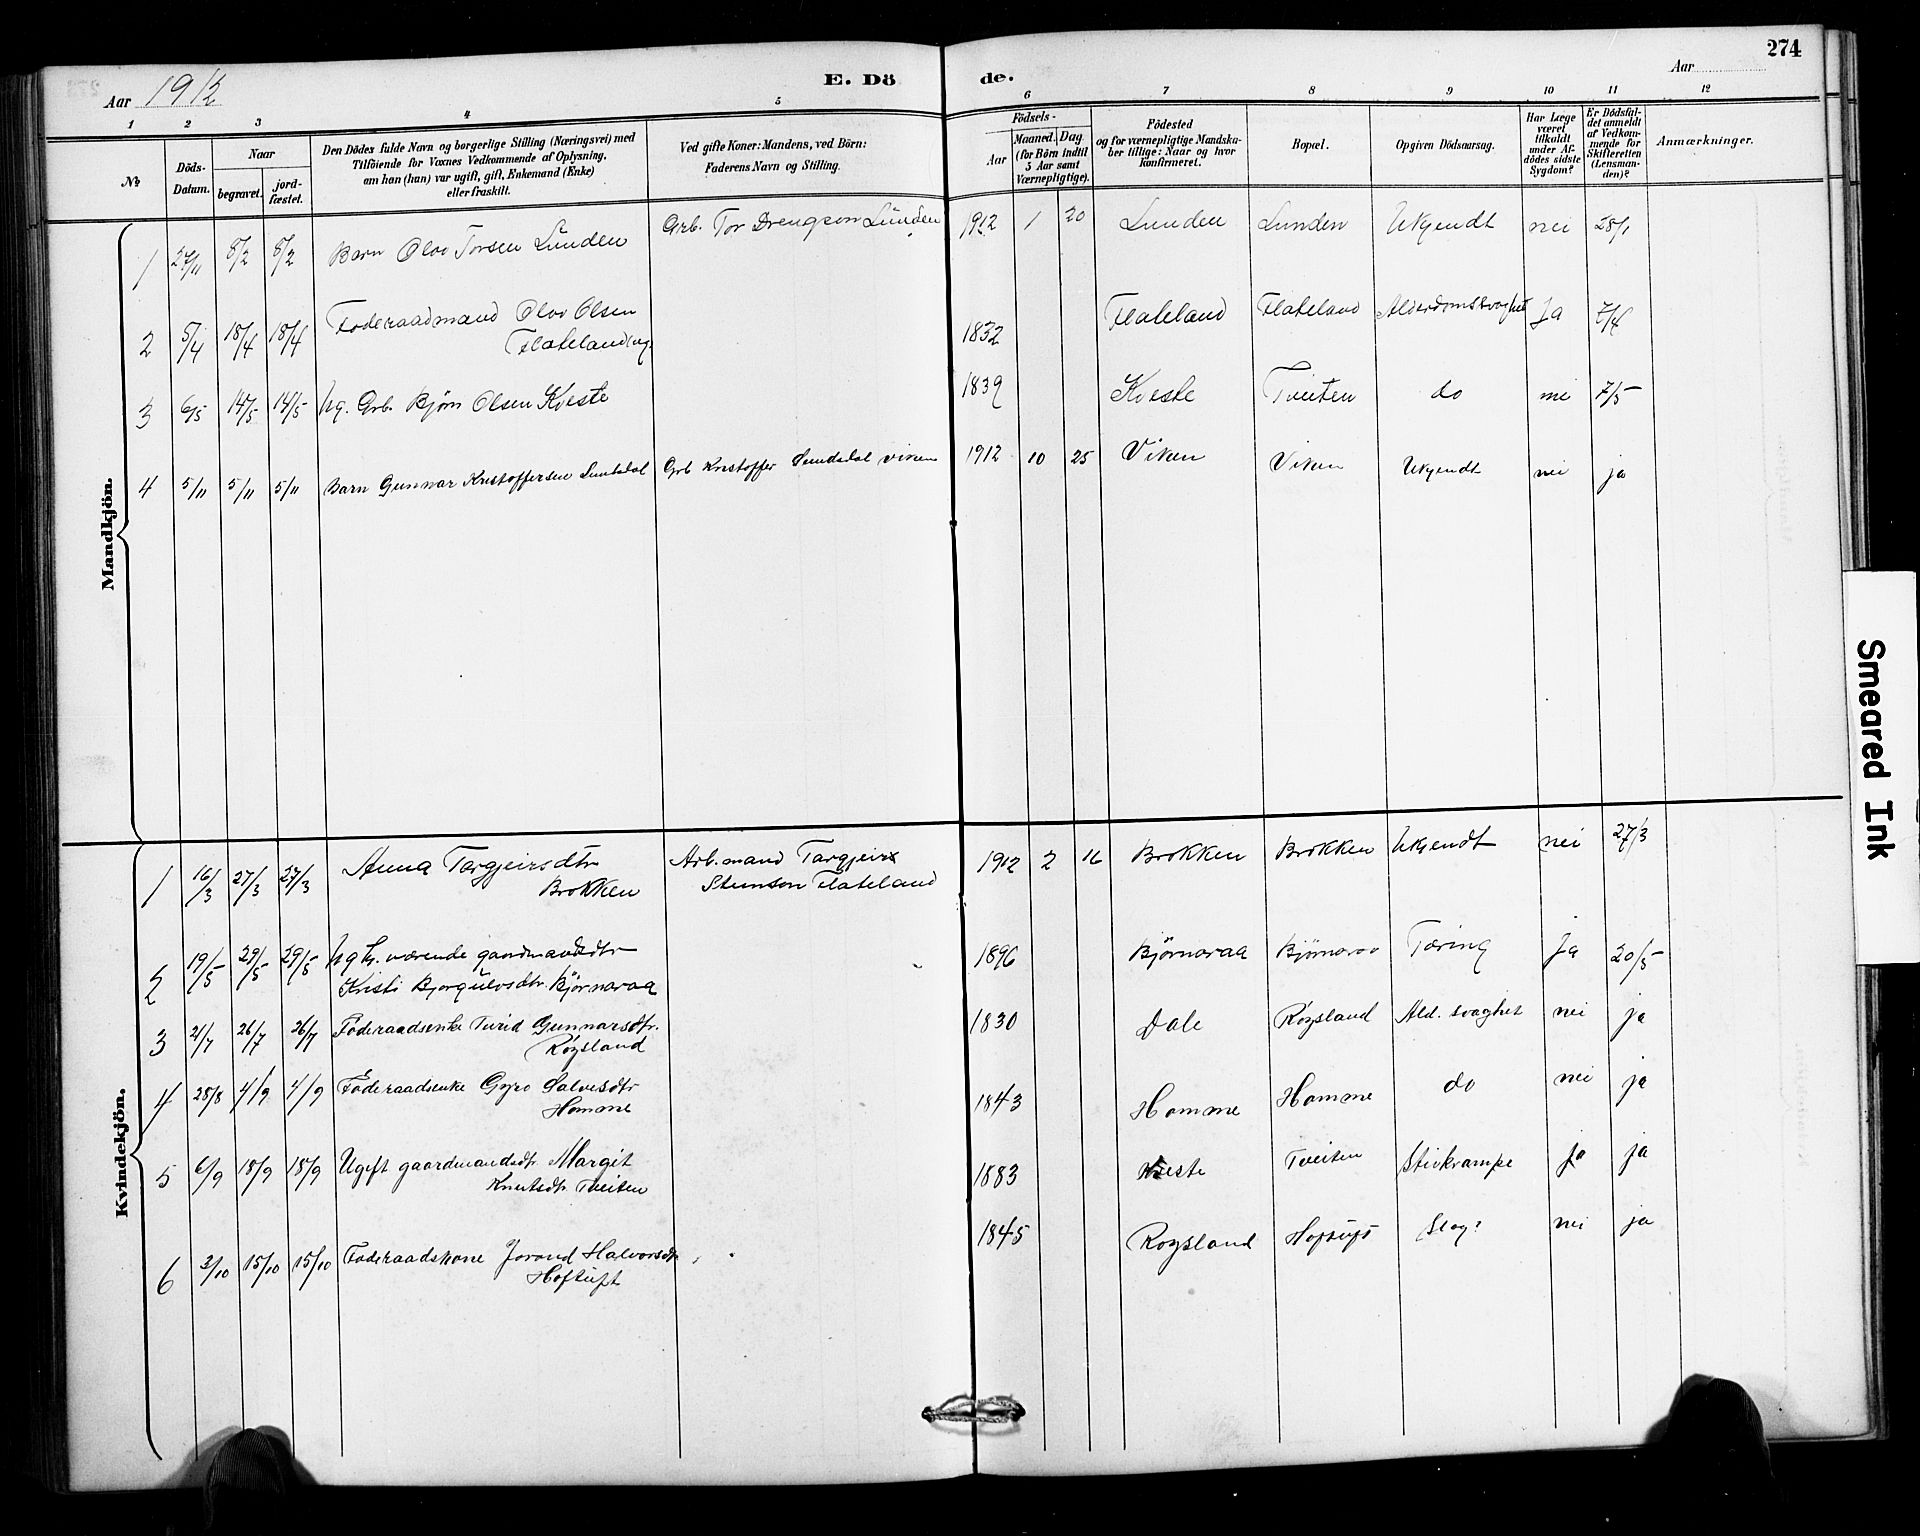 274
Aar 1912
E. Döde.
Aar
1 2 3 4 5 6 7 8 9 10 11 12
№
Döds-Datum.
Naar
begravet.
jord-fæstet.
Den Dödes fulde Navn og borgerlige Stilling (Næringsvei) med
Tilföiende for Voxnes Vedkommende af Oplysning,
om han (hun) var ugift, gift, Enkemand (Enke)
eller fraskilt.
Ved gifte Koner: Mandens, ved Börn:
Faderens Navn og Stilling.
Födsels-
Aar
Maaned.
Dag
(for Börn indtil
5 Aar samt
Værnepligtige).
Födested
og for værnepligtige Mandska-
ber tillige: Naar og hvor
konfirmeret.
Bopæl.
Opgiven Dödsaarsag.
Har Læge
været
tilkaldt
under Af-
dödes sidste
Sygdom?
Er Dödsfal-
det anmeldt
af Vedkom-
mende for
Skifteretten
(Lensman-
den)?
Anmærkninger.
Mandkjön.
1 27/1 8/2 8/2 Barn Olav Torsen Lunden Grb. Tor Drengson Lunden 1912 1 20 Lunden Lunden Ukjendt nei 28/1
2 5/4 18/4 18/4 Føderaadmand Olav Olsen
Flateland ug. 1832 Flateland Flateland Alderdomssvaghet Ja 7/4
3 6/5 14/5 14/5 Ug. Grb. Bjørn Olsen Kveste 1839 Kveste Tveiten do nei 7/5
4 5/11 5/11 5/11 Barn Gunnar Kristoffersen Sundsdal Grb Kristoffer Sundsdal Viken 1912 10 25 Viken Viken Ukjendt nei ja
Kvindekjön.
1 16/3 27/3 27/3 Anna Targjeirsdtr
Brokken Arb.mand Targjeir
Steinson Flateland 1912 2 16 Brokken Brokken Ukjendt nei 27/3
2 19/5 29/5 29/5 Ug hj. værende gaardmandsdtr
Kristi Bjorgulvsdtr. Bjørnaraa 1896 Bjørnaraa Bjørnaraa Tæring Ja 20/5
3 21/7 26/7 26/7 Føderaadsenke Turid Gunnarsdtr.
Røysland 1830 Dale Røysland Ald. svaghet nei ja
4 28/8 4/9 4/9 Føderaadsenke Gyro Salvesdtr
Homme 1843 Homme Homme do nei ja
5 6/9 18/9 18/9 Ugift gaardmandsdtr Margit
Knutsdtr Tveiten 1883 Kveste Tveiten Stivkrampe ja ja
6 3/10 15/10 15/10 Føderaadskone Jorand Halvorsdtr
Hoftuft 1845 Røysland Hoftuft Slag? nei ja
Smeared Ink